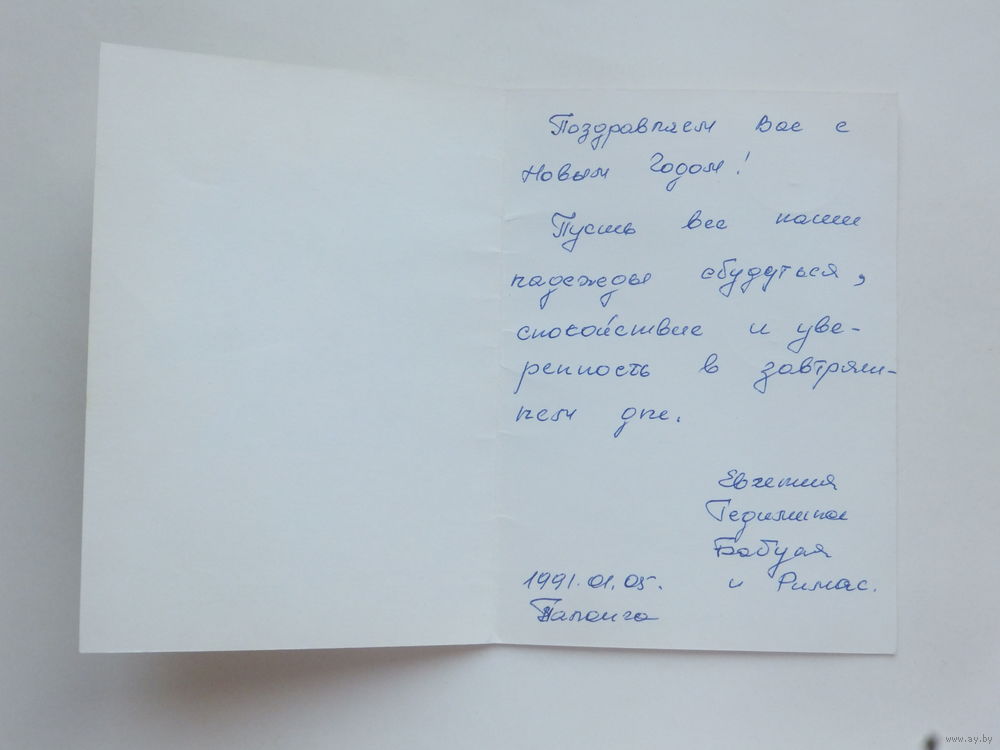 Поздравляем Вас с
Новым Годом!
Пусть все наши
надежды сбудуться,
спокойствие и уве-
ренность в завтряш-
нем дне.
Евгения
Гедимина
и Римас.
1991.01.05.
Паланга
www.ay.by